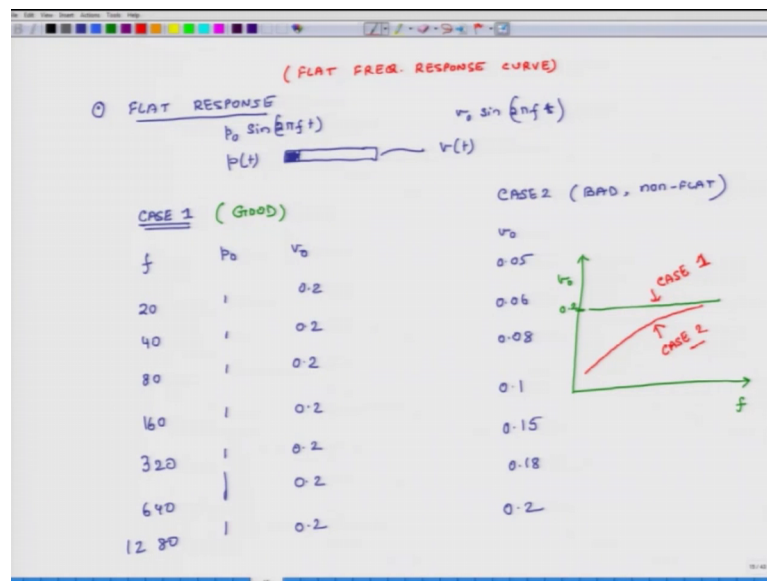 File Edit View Insert Actions Tools Help
(FLAT FREQ. RESPONSE CURVE)
⊙ FLAT RESPONSE
p₀ sin(2πft) v₀ sin(2πft)
p(t) v(t)
CASE 1 (GOOD) CASE 2 (BAD, non-FLAT)
f p₀ v₀ v₀
20 1 0.2 0.05
40 1 0.2 0.06
80 1 0.2 0.08
160 1 0.2 0.1
320 1 0.2 0.15
640 1 0.2 0.18
1280 1 0.2 0.2
v₀
0.2
CASE 1
CASE 2
f